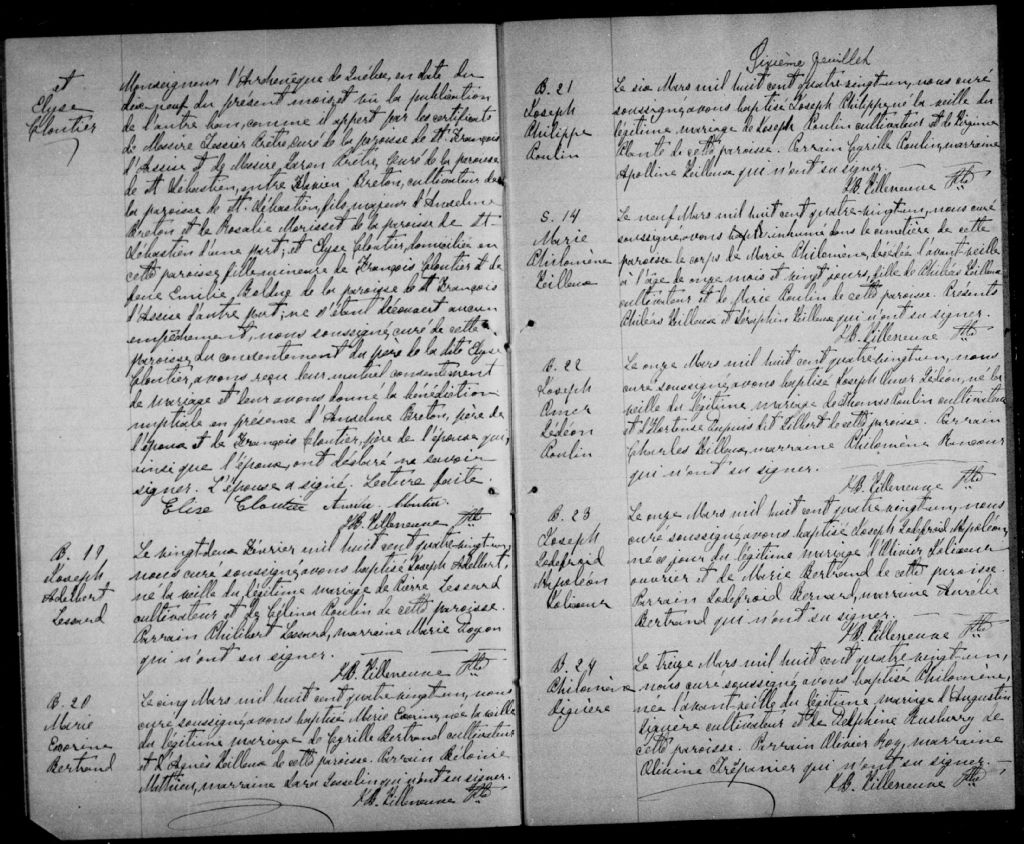 et
Elyse
Cloutier
Monseigneur l'Archevêque de Québec, en date du
dix-neuf du présent mois, et vu la publication
de l'autre ban, comme il appert par les certificats
de Messire Prêtre, curé de la paroisse de St. François
d'Assise et de Messire Prêtre, Curé de la paroisse
de St Sébastien, entre Breton, cultivateur de
la paroisse de St. Sébastien, fils majeur d'Anselme
Breton et de Rosalie Morisset de la paroisse de St-
Sébastien d'une part; et Elyse Cloutier, domiciliée en
cette paroisse, fille mineure de François Cloutier et de
feue Emilie Bolduc de la paroisse de St François
d'Assise d'autre part; ne s'étant découvert aucun
empêchement, nous soussigné, curé de cette
paroisse, du consentement du père de la dite Elyse
Cloutier, avons reçu leur mutuel consentement
de mariage et leur avons donné la bénédiction
nuptiale en présence d'Anselme Breton, père de
l'époux et de François Cloutier, père de l'épouse qui,
ainsi que l'époux, ont déclaré ne savoir
signer. L'épouse a signé. Lecture faite.
Elise Cloutier
J.B. Villeneuve Ptre
B. 19
Joseph
Adelbert
Lessard
Le vingt-deux Février mil huit cent quatre-vingt-un,
nous curé soussigné, avons baptisé Joseph Adelbert,
né la veille du légitime mariage de Pierre Lessard
cultivateur et de Célina Poulin de cette paroisse.
Parrain Philibert Lessard, marraine Marie
qui n'ont su signer.
J.B. Villeneuve Ptre
B. 20
Marie
Exorine
Bertrand
Le cinq Mars mil huit cent quatre-vingt-un, nous
curé soussigné, avons baptisé Marie Exorine, née la veille
du légitime mariage de Cyrille Bertrand cultivateur
et d'Agnès Veilleux de cette paroisse. Parrain Bélonie
Mathieu, marraine Sara Josselin qui n'ont su signer.
J.B. Villeneuve Ptre
Sixième feuillet
B. 21
Joseph
Philippe
Poulin
Le six Mars mil huit cent quatre-vingt-un, nous curé
soussigné, avons baptisé Joseph Philippe, né la veille du
légitime mariage de Joseph Poulin cultivateur et de Virginie
Plante de cette paroisse. Parrain Cyrille Poulin, marraine
Apolline Veilleux qui n'ont su signer.
J.B. Villeneuve Ptre
S. 14
Marie
Philomène
Veilleux
Le neuf Mars mil huit cent quatre-vingt-un, nous curé
soussigné, avons inhumé dans le cimetière de cette
paroisse le corps de Marie Philomène, décédée l'avant-veille
à l'âge de onze mois et vingt jours, fille de Philéas Veilleux
cultivateur et de Marie Poulin de cette paroisse. Présents
Philéas Veilleux et Séraphin Veilleux qui n'ont su signer.
J.B. Villeneuve Ptre
B. 22
Joseph
Omer
Gédéon
Poulin
Le onze Mars mil huit cent quatre-vingt-un, nous
curé soussigné, avons baptisé Joseph Omer Gédéon, né la
veille du légitime mariage de Thomas Poulin cultivateur
et d'Hortense Dupuis dit Gilbert de cette paroisse. Parrain
Charles Veilleux, marraine Philomène Rancour
qui n'ont su signer.
J.B. Villeneuve Ptre
B. 23
Joseph
Godefroid
Napoléon
Jolicoeur
Le onze Mars mil huit cent quatre-vingt-un, nous
curé soussigné, avons baptisé Joseph Godefroid Napoléon,
né ce jour du légitime mariage d'Olivier Jolicoeur
ouvrier et de Marie Bertrand de cette paroisse.
Parrain Godefroid Bernard, marraine Aurélie
Bertrand qui n'ont su signer.
J.B. Villeneuve Ptre
B. 24
Philomène
Giguère
Le treize Mars mil huit cent quatre-vingt-un,
nous curé soussigné, avons baptisé Philomène,
née l'avant-veille du légitime mariage d'Augustin
Giguère cultivateur et de Delphine de
cette paroisse. Parrain Olivier Roy, marraine
Olivine Trépanier qui n'ont su signer.
J.B. Villeneuve Ptre